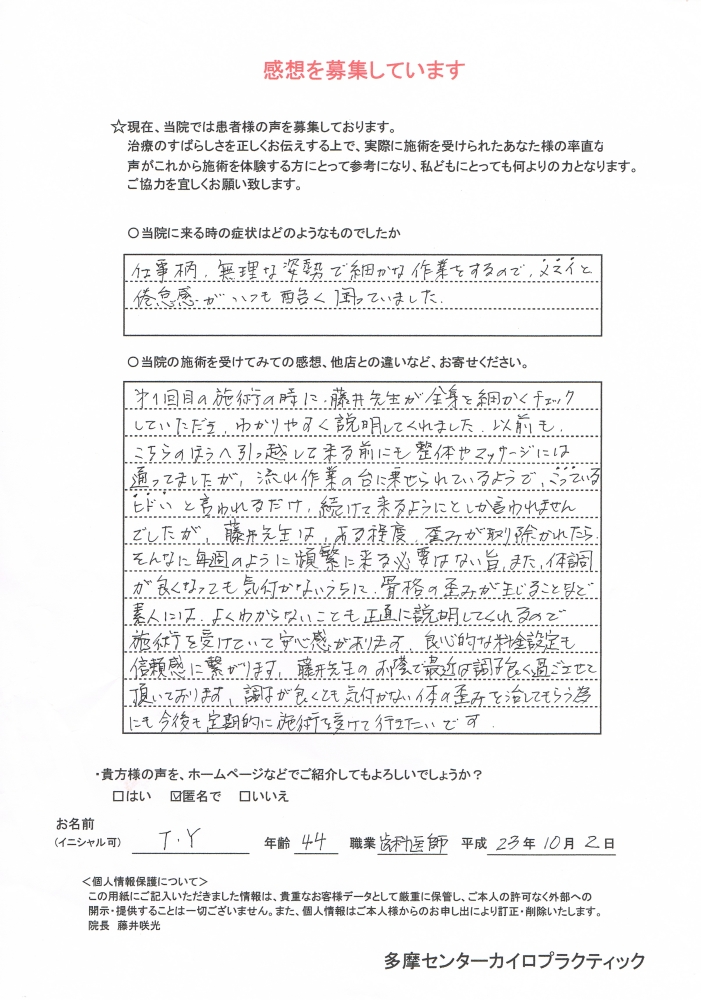 感想を募集しています
☆現在、当院では患者様の声を募集しております。
治療のすばらしさを正しくお伝えする上で、実際に施術を受けられたあなた様の率直な
声がこれから施術を体験する方にとって参考になり、私どもにとっても何よりの力となります。
ご協力を宜しくお願い致します。
○当院に来る時の症状はどのようなものでしたか
仕事柄、無理な姿勢で細かな作業をするので、メマイと
倦怠感がいつも酷く困っていました。
○当院の施術を受けてみての感想、他店との違いなど、お寄せください。
第1回目の施術の時に、藤井先生が全身を細かくチェック
していただき、わかりやすく説明してくれました。以前も、
こちらのほうへ引っ越して来る前にも整体やマッサージには
通ってましたが、流れ作業の台に乗せられているようで、こっている
ヒドいと言われるだけ、続けて来るようにとしか言われません
でしたが、藤井先生は、ある程度、歪みが取り除かれたら
そんなに毎週のように頻繁に来る必要はない旨、また、体調
が良くなっても気付かないうちに、骨格の歪みが生じることなど
素人には、よくわからないことも正直に説明してくれるので
施術を受けていて安心感があります。良心的な料金設定も
信頼感に繋がります。藤井先生のお陰で最近は調子良く過ごさせて
頂いております。調子が良くとも気付かない体の歪みを治してもらう為
にも今後も定期的に施術を受けて行きたいです。
・貴方様の声を、ホームページなどでご紹介してもよろしいでしょうか？
□はい ☑匿名で □いいえ
お名前
(イニシャル可) T.Y 年齢 44 職業 歯科医師 平成 23年10月2日
＜個人情報保護について＞
この用紙にご記入いただきました情報は、貴重なお客様データとして厳重に保管し、ご本人の許可なく外部への
開示・提供することは一切ございません。また、個人情報はご本人様からのお申し出により訂正・削除いたします。
院長 藤井咲光
多摩センターカイロプラクティック